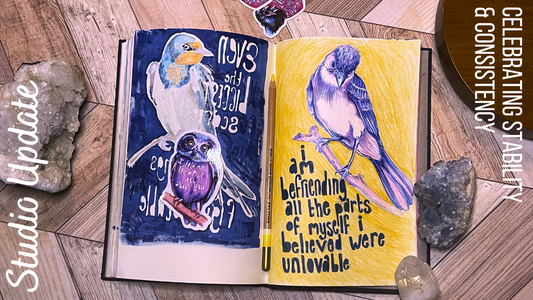 Studio Update
CELEBRATING STABILTY
& CONSISTENCY
the
i
am
befriending
all the parts
of myself i
believed were
unlovable